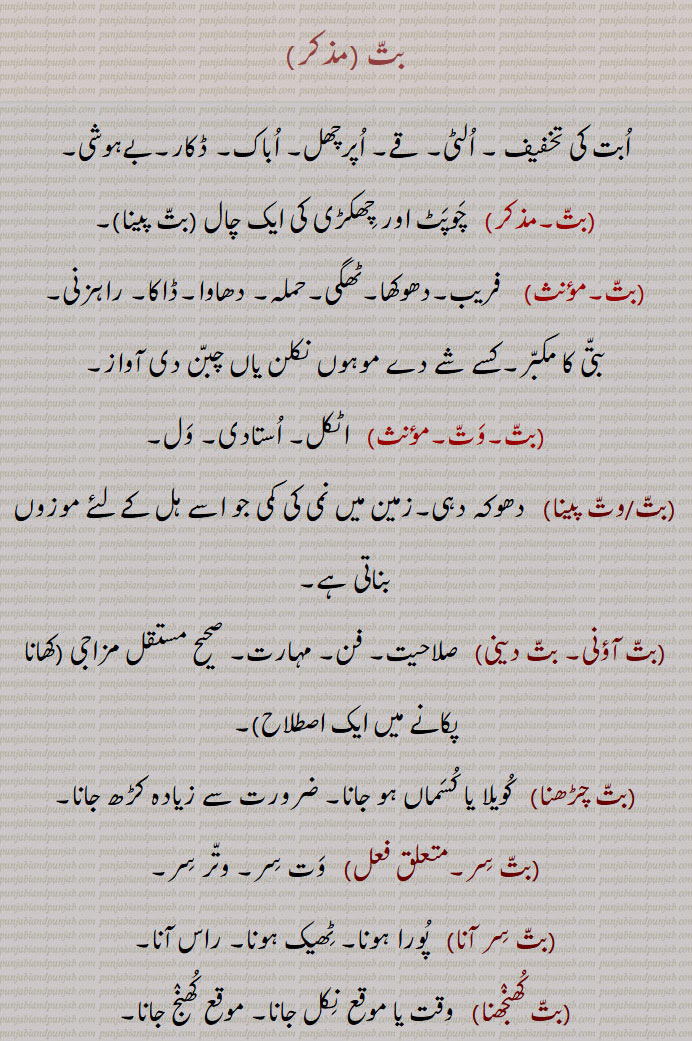 بتّ (مذکر)
اُبت کی تخفیف ۔ اُلٹی۔ قے۔ اُپرچھل۔ اُباک۔ ڈکار۔بے ہوشی۔
(بتّ۔مذکر) چَوپَٹ اور چِھکڑی کی ایک چال (بتّ پینا)۔
(بتّ۔مؤنث) فریب۔دھوکھا۔ٹھگی۔حملہ۔ دھاوا۔ڈاکا۔ راہزنی۔
بتّی کا مکبّر۔کسے شے دے موہوں نکلن یاں چبّن دی آواز۔
(بتّ۔وَتّ۔مؤنث) اٹکل۔ اُستادی۔ وَل۔
(بتّ/وتّ پینا) دھوکہ دہی۔زمین میں نمی کی کمی جو اسے ہل کے لئے موزوں
بناتی ہے۔
(بتّ آؤنی۔ بتّ دینی) صلاحیت۔ فن۔ مہارت۔ صحیح مستقل مزاجی (کھانا
پکانے میں ایک اصطلاح)۔
(بتّ چڑھنا) کُویلا یا کُسَماں ہو جانا۔ ضرورت سے زیادہ کڑھ جانا۔
(بتّ سِر۔متعلق فعل) وَت سِر۔ وتّر سِر۔
(بتّ سِر آنا) پُورا ہونا۔ ٹِھیک ہونا۔ راس آنا۔
(بتّ کُھنجھنا) وقت یا موقع نِکل جانا۔ موقع کُھنج جانا۔